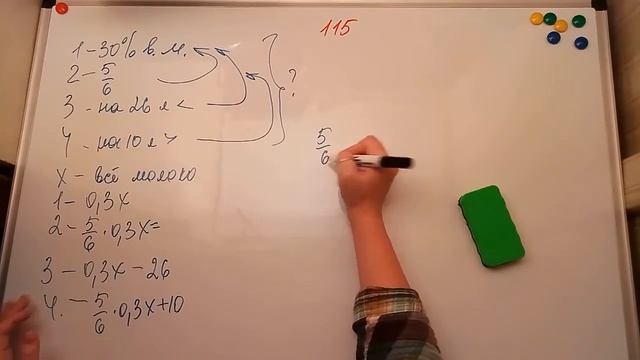 115
1 - 30% в.м.
2 - 5/6
3 - на 26 л <
4 - на 10 л >
?
x - всё молоко
1 - 0,3x
2 - 5/6 · 0,3x =
3 - 0,3x - 26
4. - 5/6 · 0,3x + 10
5/6